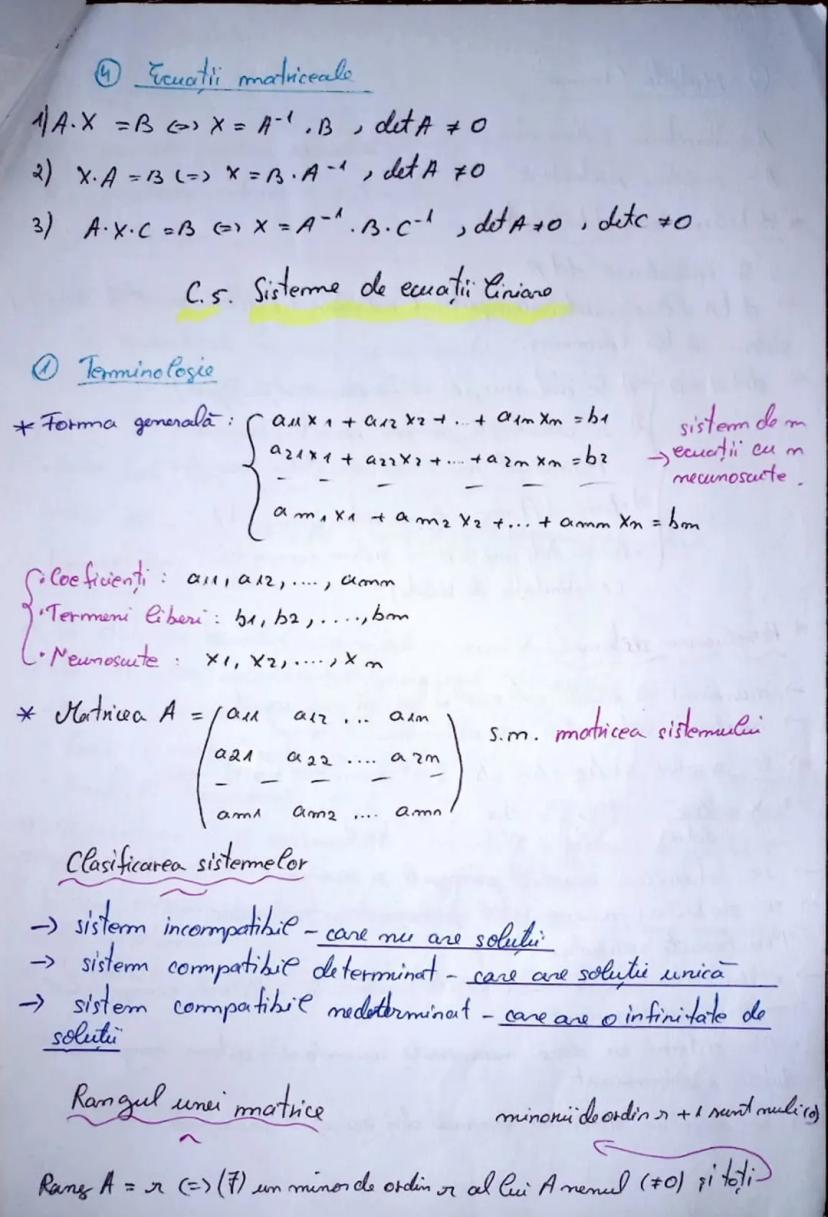 ④ Ecuații matriceale
1) A·X = B <=> X = A⁻¹ · B , det A ≠ 0
2) X·A = B <=> X = B · A⁻¹ , det A ≠ 0
3) A·X·C = B <=> X = A⁻¹ · B · C⁻¹ , det A ≠ 0 , det C ≠ 0
C. 5. Sisteme de ecuații liniare
① Terminologie
* Forma generală : { a11 x1 + a12 x2 + .. + a1n xn = b1
a21 x1 + a22 x2 + ... + a2n xn = b2
am1 x1 + am2 x2 + ... + amn xn = bm
sistem de m
→ ecuații cu n
necunoscute .
• Coeficienți : a11, a12, ...., amn
• Termeni liberi : b1, b2, ...., bm
• Neunoscute : x1, x2, ...., xn
* Matricea A = ( a11 a12 ... a1n
a21 a22 .... a2n
am1 am2 .... amn ) s.m. matricea sistemului
Clasificarea sistemelor
→ sistem incompatibil - care nu are soluții
→ sistem compatibil determinat - care are soluție unică
→ sistem compatibil nedeterminat - care are o infinitate de
soluții
Rangul unei matrice
minorii de ordin r + 1 sunt nuli (0)
Rang A = r <=> (∃) un minor de ordin r al lui A nenul (≠0) și toți